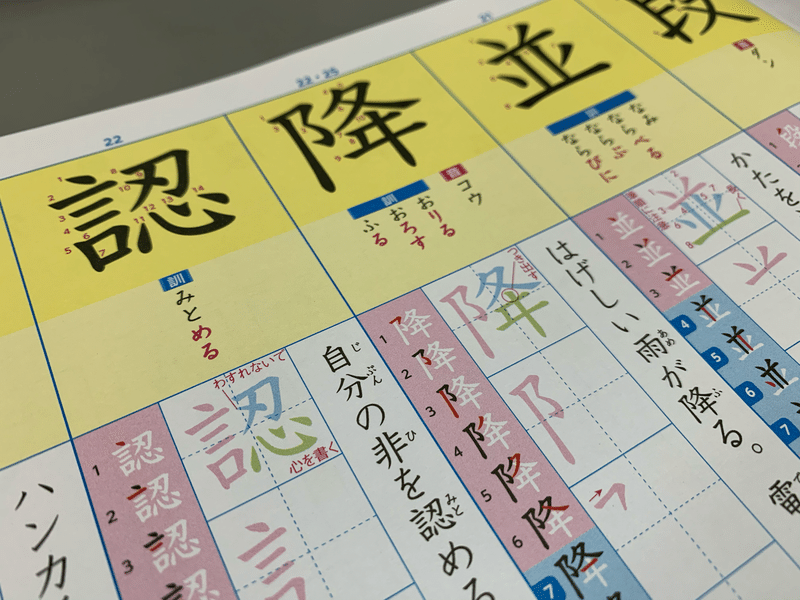 21
段
音
ダン
かたを
並
訓
なみ
ならべる
ならぶ
ならびに
並
1 並
2 並
3 並
4 並
5 並
6 並
7
22・25
降
音
コウ
訓
おりる
おろす
ふる
はげしい雨が降る。
あめ
ふ
電
つき出す
降
1 降
2 降
3 降
4 降
5 降
6 降
7 降
22
認
訓
みとめる
自分の非を認める
じ
ぶん
ひ
みと
わすれないで
認
心を書く
1 認
2 認
3 認
ハンカチ